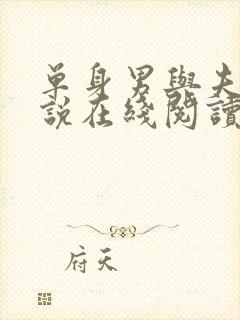 單身男與夫
說在綫閱讀
府天